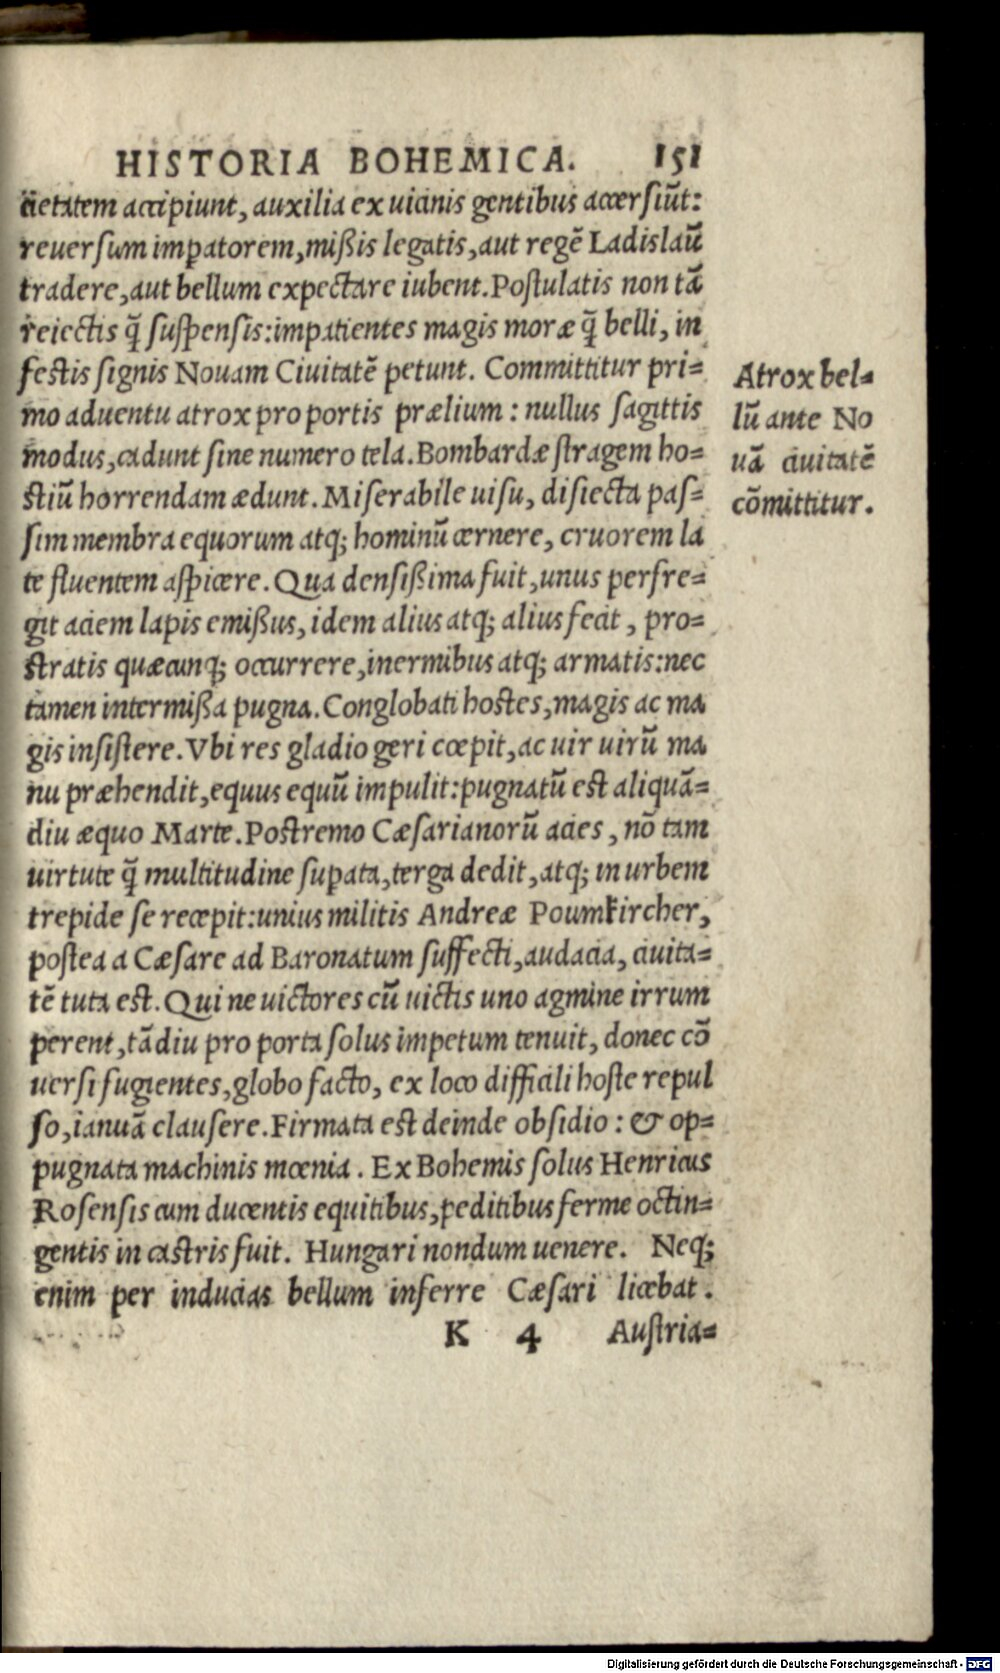 HISTORIA BOHEMICA. 151
cietatem accipiunt, auxilia ex uicinis gentibus accersiūt:
reuersum impatorem, mißis legatis, aut regē Ladislaū
tradere, aut bellum expectare iubent. Postulatis non tā
reiectis q̃ suspensis: impatientes magis moræ q̃ belli, in
festis signis Nouam Ciuitatē petunt. Committitur pri=
mo aduentu atrox pro portis prælium: nullus sagittis
modus, cadunt sine numero tela. Bombardæ stragem ho=
stiū horrendam ædunt. Miserabile uisu, disiecta pas=
sim membra equorum atq; hominū cernere, cruorem la
te fluentem aspicere. Qua densißima fuit, unus perfre=
git aciem lapis emißus, idem alius atq; alius fecit, pro=
stratis quæcunq; occurrere, inermibus atq; armatis: nec
tamen intermißa pugna. Conglobati hostes, magis ac ma
gis insistere. Vbi res gladio geri cœpit, ac uir uirū ma
nu præhendit, equus equū impulit: pugnatū est aliquā=
diu æquo Marte. Postremo Cæsarianorū acies, nō tam
uirtute q̃ multitudine supata, terga dedit, atq; in urbem
trepide se recepit: unius militis Andreæ Poumkircher,
postea a Cæsare ad Baronatum suffecti, audacia, ciuita=
tē tuta est. Qui ne uictores cū uictis uno agmine irrum
perent, tādiu pro porta solus impetum tenuit, donec cō
uersi fugientes, globo facto, ex loco difficili hoste repul
so, ianuā clausere. Firmata est deinde obsidio: & op=
pugnata machinis mœnia. Ex Bohemis solus Henricus
Rosensis cum ducentis equitibus, peditibus ferme octin=
gentis in castris fuit. Hungari nondum uenere. Neq;
enim per inducias bellum inferre Cæsari licebat.
K 4 Austria=
Atrox bel=
lū ante No
uā ciuitatē
cōmittitur.
Digitalisierung gefördert durch die Deutsche Forschungsgemeinschaft - DFG